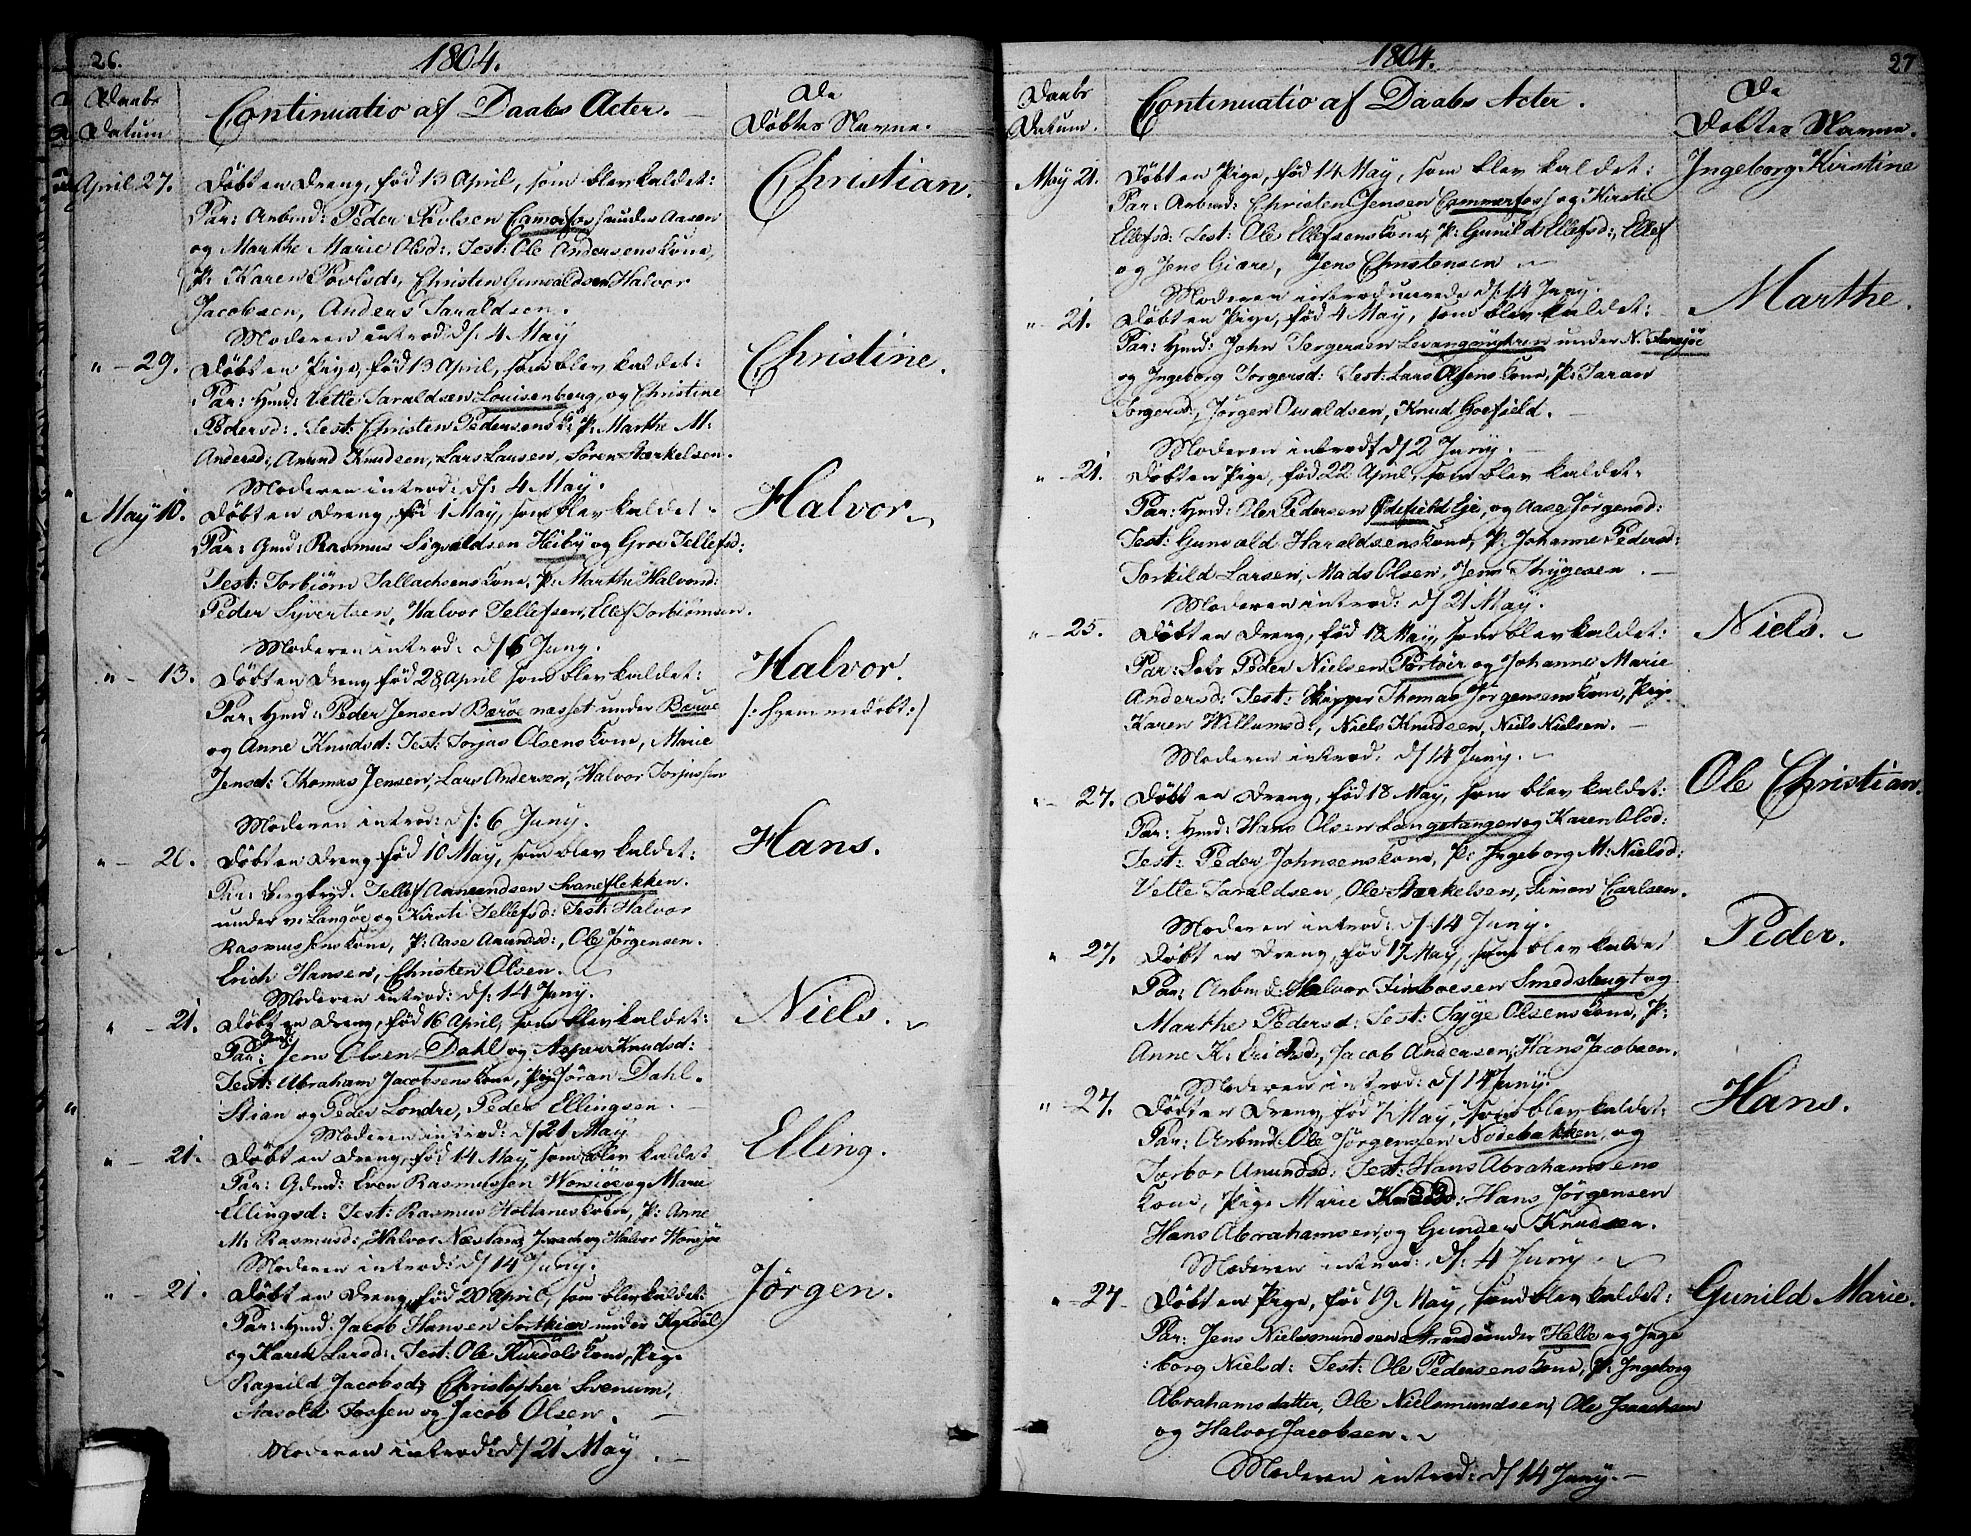 26.
1804.
Daabs Datum
Continuatio af Daabs Acter.
De Døbtes Navne.
April 27.
Døbt en Dreng, fød 13 April, som blev kaldet:
Christian.
Par: Arbmd: Peder Povlsen under Aasen
og Marthe Marie Olsd: Test: Ole Andersens Kone,
P: Karen Povlsd:, Christen Gunvaldsen Halvor
Jacobsen, Anders Taraldsen.
Moderen introd: d: 4 May
" - 29.
Døbt en Pige, fød 13 April, som blev kaldet:
Christine.
Par: Hmd: Vette Taraldsen Louisenberg, og Christine
Pedersd:. Test: Christen Pedersens K: P: Marthe M:
Andersd:, Amund Knudsen, Lars Lausen, Søren Stærkelsen.
Moderen introd: d: 4 May.
May 10.
Døbt en Dreng, fød 1 May, som blev kaldet.
Halvor.
Par: Gmd: Rasmus Sigvaldsen Heiby og Groe Tellefsd:
Test: Torbiørn Tallachsens Kone, P: Marthe Halvorsd:
Peder Syvertsen, Halvor Tellefsen, Ellef Torbiørnsen.
Moderen introd: d/ 6 Juny.
" - 13.
Døbt en Dreng fød 28 April som blev kaldet:
Halvor.
Par. Hmd: Peder Jensen Barøe næsset under Barøe
/: hjemmedøbt :/
og Anne Knudsd: Test: Torjus Olsens Kone, Marie
Jensd: Thomas Jensen, Lars Andersen, Halvor Torjussen
Moderen introd: d/: 6 Juny.
" - 20.
Døbt en Dreng fød 10 May, som blev kaldet:
Hans.
Par: Tellef Svaneflekken.
under v: Langøe og Kirsti Tellefsd: Test: Halvor
Rasmussens Kone, P: Aase Amundsd:, Ole Jørgensen.
Erich Hansen, Christen Olsen.
Moderen introd: d/: 14 Juny.
" - 21.
Døbt en Dreng, fød 16 April, som blev kaldet:
Niels.
Par: Jens Olsen Dahl og Knudsd:
Test: Abraham Jacobsens Kone, Pige Jøran Dahl.
Stian og Peder Londre, Peder Ellingsen.
Moderen introd: d/ 21 May
" - 21.
Døbt en Dreng, fød 14 May, som blev kaldet
Elling.
Par: Gdmd: Even Rasmussen og Marie
Ellingsd: Test: Rasmus Kone, P: Anne
M: Rasmusd:, Halvor Næstang, Isaach og Halvor
Moderen introd: d/ 14 Juny.
" - 21.
Døbt en Dreng, fød 20 April, som blev kaldet:
Jørgen.
Par: Hmd: Jacob Hansen Sortkiær under
og Karen Larsd: Test: Ole Kurdøls Kone, Pige
Ragnild Jacobsd:, Christopher Svenum,
Aasold Fossen og Jacob Olsen.
Moderen introd: d/ 21 May.
1804.
27
Daabs Datum.
Continuatio af Daabs Acter.
De Døbtes Navne.
May 21.
Døbt en Pige, fød 14 May, som blev kaldet:
Ingeborg Kirstine
Par: Arbmd: Christen Jensen Cammerfos og Kirsti
Ellefsd: Test: Ole Ellefsens Kone, P: Gunild Ellefsd:, Ellef
og Jens Giære, Jens Christensen
Moderen introduceredes d: 14 Juny.
" - 21.
Døbt en Pige, fød 4 May, som blev kaldet:
Marthe.
Par: Hmd: John Tergersen under N.
og Ingeborg Torgersd: Test: Lars Olsens Kone, P: Taran
Torgersd:, Jørgen Osvaldsen, Knud Goefield.
Moderen introd: d/ 2 Juny.
" - 21.
Døbt en Pige, fød 22 April, som blev kaldet:
Par: Hmd: Ole Pedersen Eje, og Aase Jørgensd:
Test: Gunvald Haraldsens Kone, P: Johanne Pedersd:
Torkild Larsen, Mads Olsen, Jens Thygesen.
Moderen introd: d/ 21 May.
" - 25.
Døbt en Dreng, fød 18 May, som blev kaldet:
Niels.
Par: Peder Nielsen Portøer og Johanne Marie
Andersd: Test: Skipper Thomas Jørgensens Kone, Pige
Karen Willumsd:, Niels Knudsen, Niels Nielsen.
Moderen introd: d/ 14 Juny.
" - 27.
Døbt en Dreng, fød 18 May, som blev kaldet:
Ole Christian.
Par: Hmd: Hans Olsen Langetangen og Karen Olsd:
Test: Peder Johnsens Kone, P: Ingeborg M: Nielsd:
Vette Taraldsen, Ole Stærkelsen, Simon Carlsen.
Moderen introd: d/: 14 Juny.
" - 27.
Døbt en Dreng, fød 17 May, som blev kaldet
Peder.
Par: Arbmd: Halvor Finboesen Smedsbugt og
Marthe Pedersd: Test: Tyge Olsens Kone, P:
Anne K: Erichsd:, Jacob Andersen, Hans Jacobsen.
Moderen introd: d/ 14 Juny.
" - 27.
Døbt en Dreng, fød 7 May, som blev kaldet:
Hans.
Par: Arbmd: Ole Jørgensen Nodebakken, og
Torbor Amundsd: Test: Hans Abrahamsens
Kone, Pige Marie Hans Jørgensen
Hans Abrahamsen, og Gunder Knudsen.
Moderen introd: d/: 4 Juny
" - 27
Døbt en Pige, fød 19 May, som blev kaldet:
Gunild Marie.
Par: Jens Nielsmundsen Strand under Helle og Inge
:borg Nielsd: Test: Ole Pedersens Kone, P: Ingeborg
Abrahamsdatter, Ole Nielsmundsen, Ole Isaachsen
og Halvor Jacobsen.
Moderen introd: d/ 14 Juny.